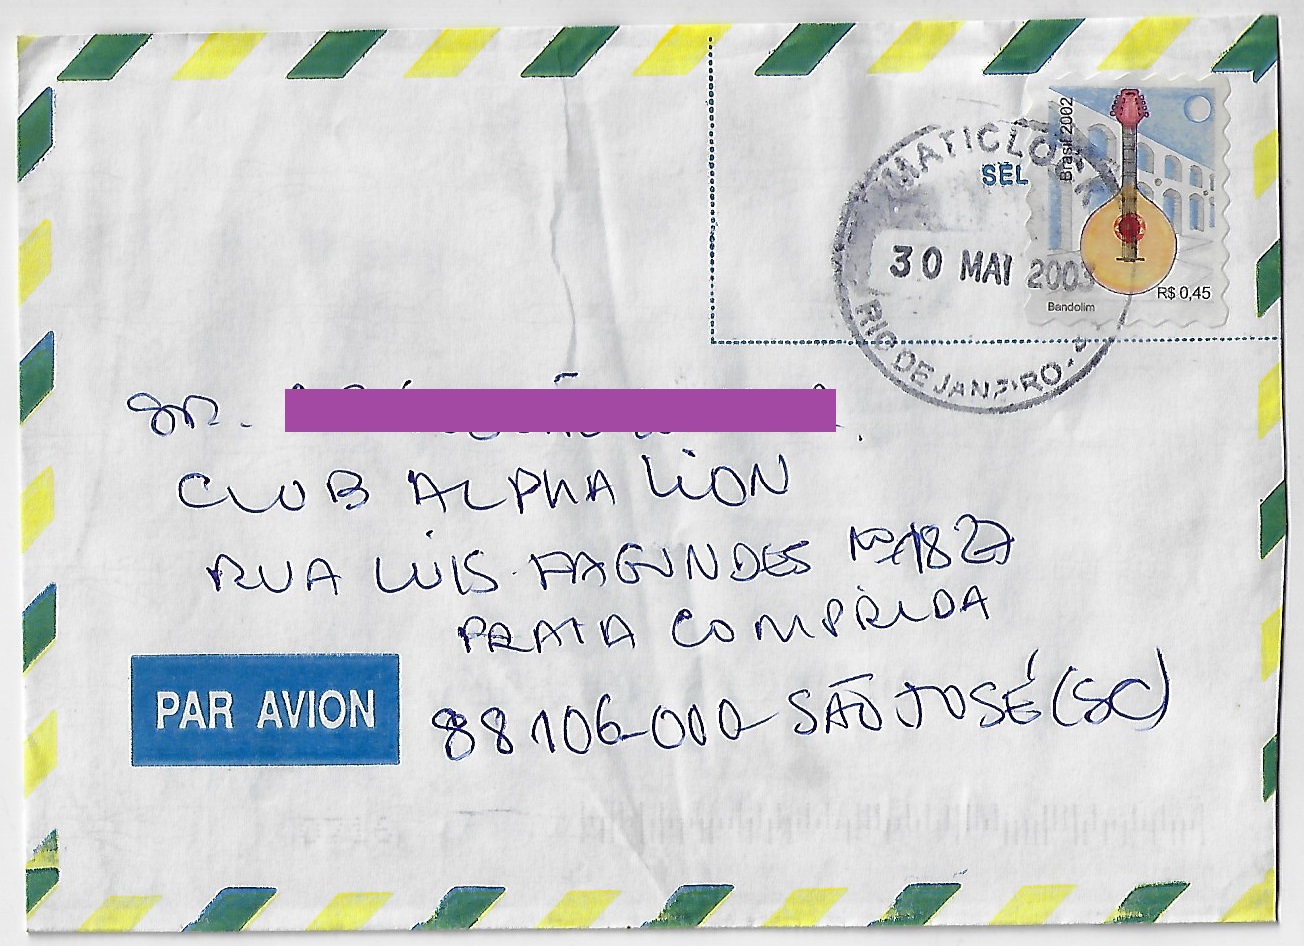 MATICLOCK
SEL
Brasil 2002
30 MAI 2003
R$ 0,45
Bandolim
RIO DE JANEIRO
SR.
CLUB ALPHA LION
RUA LUIS FAGUNDES Nº 1827
PRAIA COMPRIDA
PAR AVION
88106-000 - SÃO JOSÉ (SC)